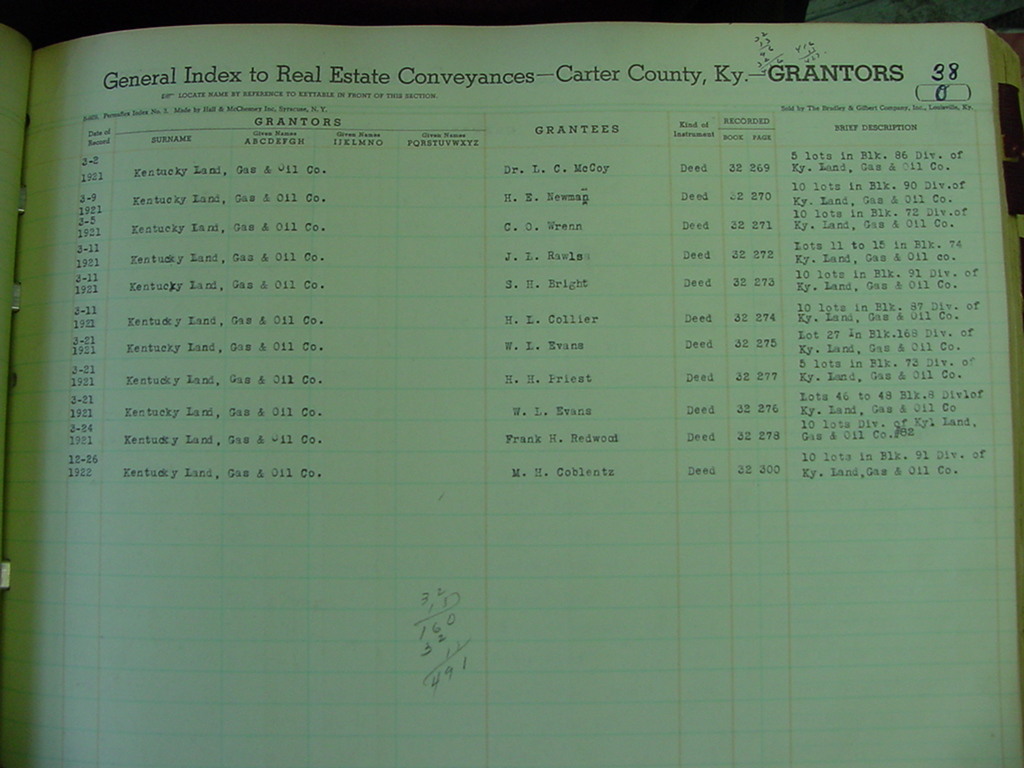 General Index to Real Estate Conveyances—Carter County, Ky.—GRANTORS 38
0
LOCATE NAME BY REFERENCE TO KEYTABLE IN FRONT OF THIS SECTION.
Permaflex Index No. 2. Made by Hall & McChesney Inc, Syracuse, N. Y. Sold by The Bradley & Gilbert Company, Inc., Louisville, Ky.
Date of Record GRANTORS GRANTEES Kind of Instrument RECORDED BRIEF DESCRIPTION
SURNAME Given Names ABCDEFGH Given Names IJKLMNO Given Names PQRSTUVWXYZ BOOK PAGE
3-2 5 lots in Blk. 86 Div. of
1921 Kentucky Land, Gas & Oil Co. Dr. L. C. McCoy Deed 32 269 Ky. Land, Gas & Oil Co.
3-9 10 lots in Blk. 90 Div.of
1921 Kentucky Land, Gas & Oil Co. H. E. Newman Deed 32 270 Ky. Land, Gas & Oil Co.
3-5 10 lots in Blk. 72 Div.of
1921 Kentucky Land, Gas & Oil Co. C. O. Wrenn Deed 32 271 Ky. Land, Gas & Oil Co.
3-11 Lots 11 to 15 in Blk. 74
1921 Kentucky Land, Gas & Oil Co. J. L. Rawls Deed 32 272 Ky. Land, Gas & Oil co.
3-11 10 lots in Blk. 91 Div. of
1921 Kentucky Land, Gas & Oil Co. S. H. Bright Deed 32 273 Ky. Land, Gas & Oil Co.
3-11 10 lots in Blk. 87 Div. of
1921 Kentucky Land, Gas & Oil Co. H. L. Collier Deed 32 274 Ky. Land, Gas & Oil Co.
3-21 Lot 27 in Blk.168 Div. of
1921 Kentucky Land, Gas & Oil Co. W. L. Evans Deed 32 275 Ky. Land, Gas & Oil Co.
3-21 5 lots in Blk. 73 Div. of
1921 Kentucky Land, Gas & Oil Co. H. H. Priest Deed 32 277 Ky. Land, Gas & Oil Co.
3-21 Lots 46 to 48 Blk.8 Divlof
1921 Kentucky Land, Gas & Oil Co. W. L. Evans Deed 32 276 Ky. Land, Gas & Oil Co
3-24 10 lots Div. of Kyl Land,
1921 Kentucky Land, Gas & Oil Co. Frank H. Redwood Deed 32 278 Gas & Oil Co.#82
12-26 10 lots in Blk. 91 Div. of
1922 Kentucky Land, Gas & Oil Co. M. H. Coblentz Deed 32 300 Ky. Land,Gas & Oil Co.
32
15
160
32
11
491